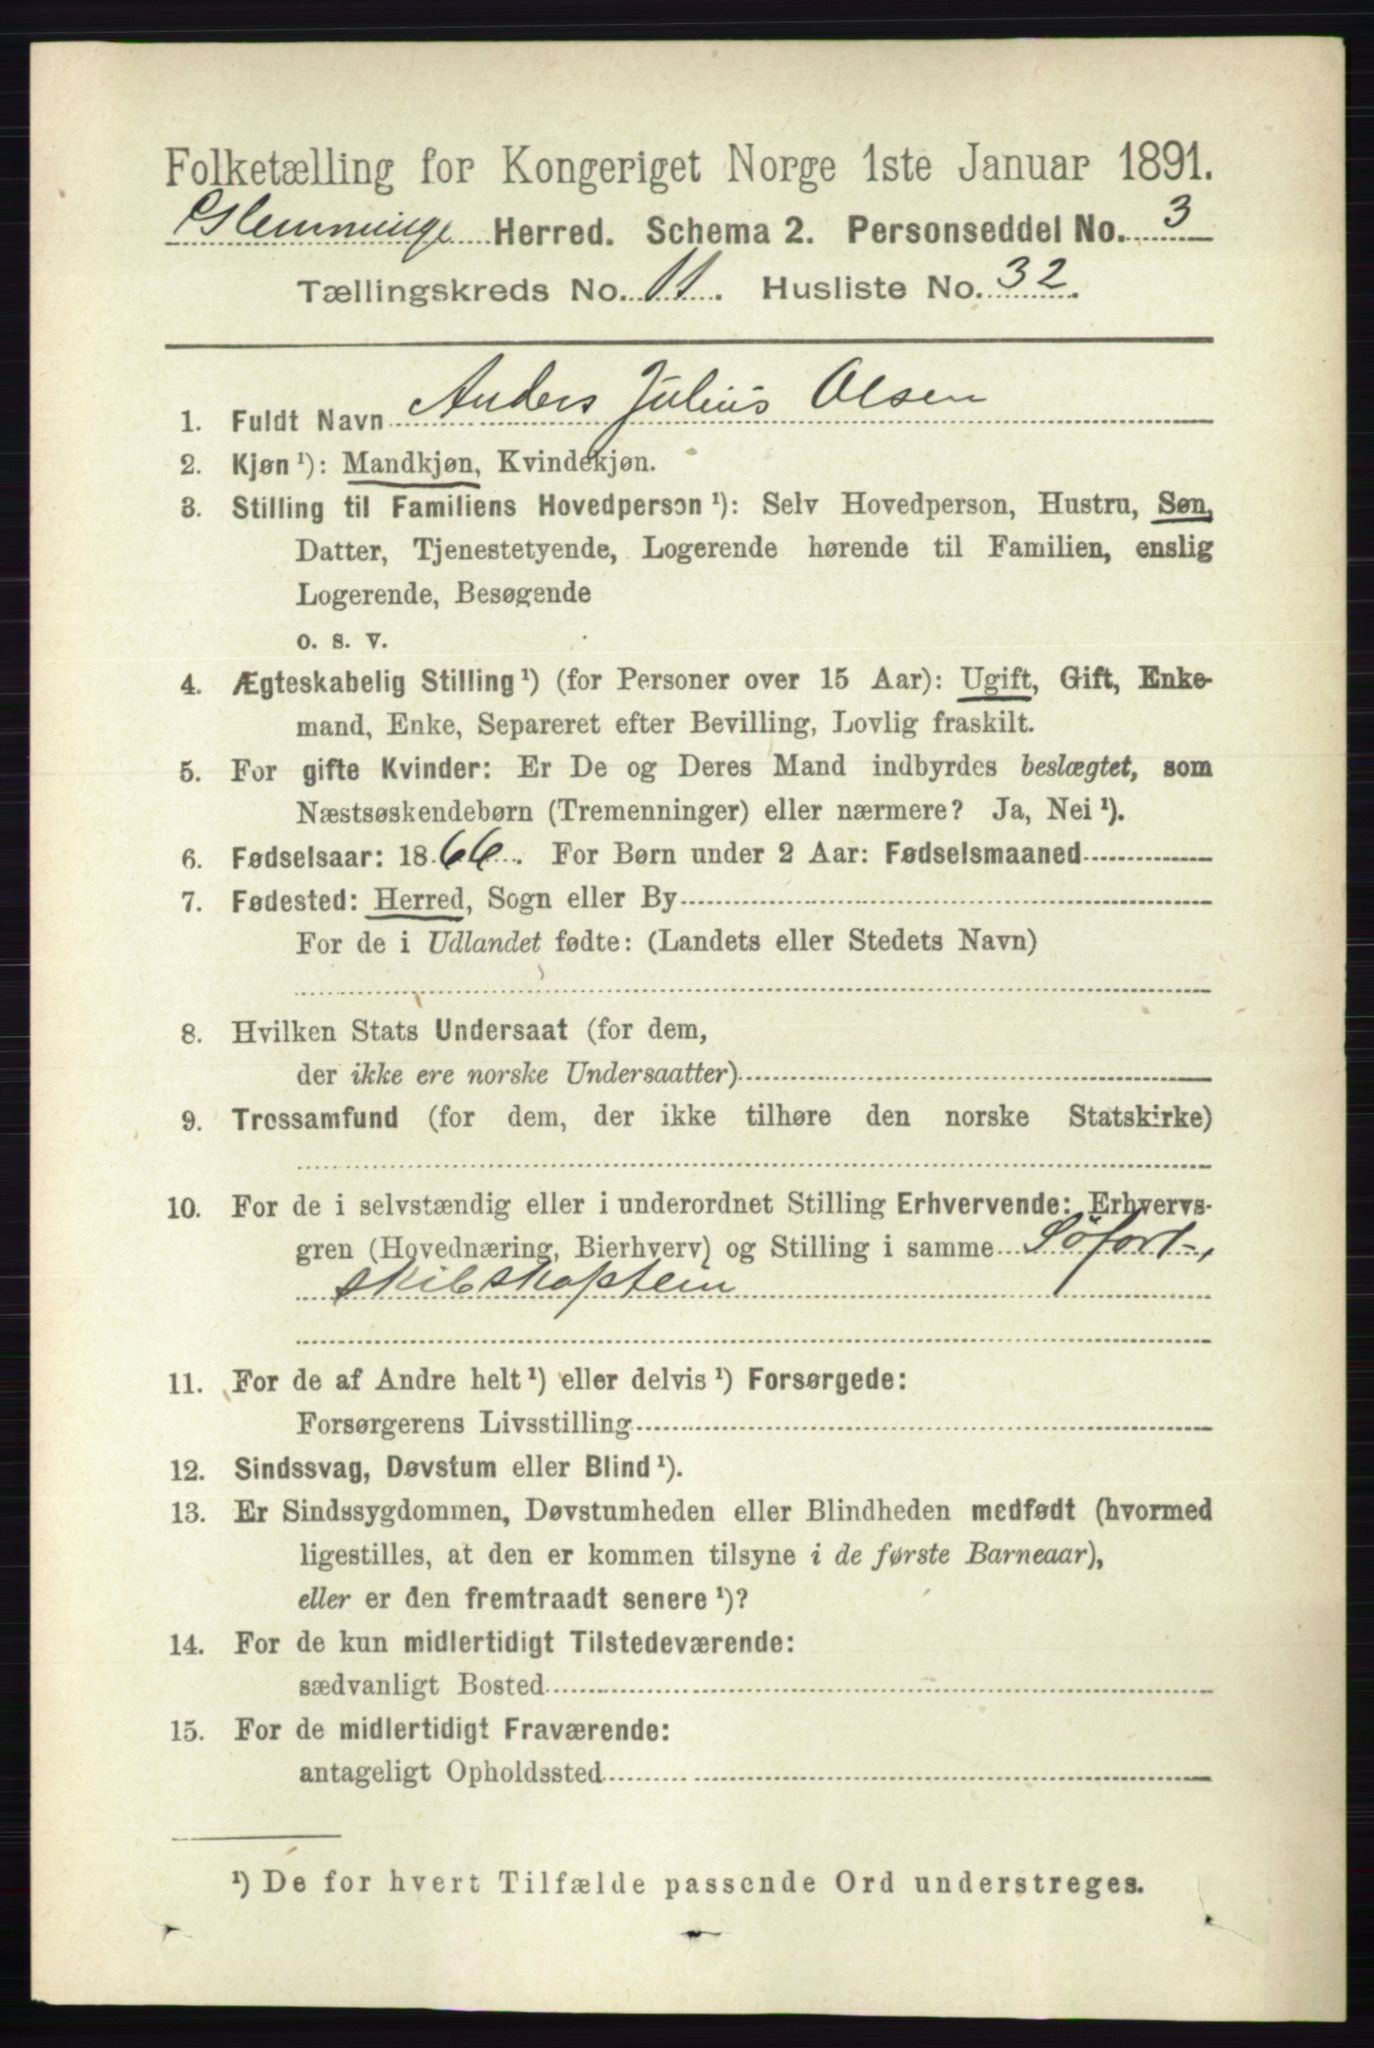 Folketælling for Kongeriget Norge 1ste Januar 1891.
Glemminge Herred. Schema 2. Personseddel No. 3
Tællingskreds No. 11. Husliste No. 32.
1. Fuldt Navn Anders Julius Olsen
2. Kjøn¹): Mandkjøn, Kvindekjøn.
3. Stilling til Familiens Hovedperson¹): Selv Hovedperson, Hustru, Søn,
Datter, Tjenestetyende, Logerende hørende til Familien, enslig
Logerende, Besøgende
o. s. v.
4. Ægteskabelig Stilling¹) (for Personer over 15 Aar): Ugift, Gift, Enke-
mand, Enke, Separeret efter Bevilling, Lovlig fraskilt.
5. For gifte Kvinder: Er De og Deres Mand indbyrdes beslægtet, som
Næstsøskendebørn (Tremenninger) eller nærmere? Ja, Nei¹).
6. Fødselsaar: 1866. For Børn under 2 Aar: Fødselsmaaned
7. Fødested: Herred, Sogn eller By
For de i Udlandet fødte: (Landets eller Stedets Navn)
8. Hvilken Stats Undersaat (for dem,
der ikke ere norske Undersaatter)
9. Trossamfund (for dem, der ikke tilhøre den norske Statskirke)
10. For de i selvstændig eller i underordnet Stilling Erhvervende: Erhvervs-
gren (Hovednæring, Bierhverv) og Stilling i samme Söfart-,
skibskaptein
11. For de af Andre helt¹) eller delvis¹) Forsørgede:
Forsørgerens Livsstilling
12. Sindssvag, Døvstum eller Blind¹).
13. Er Sindssygdommen, Døvstumheden eller Blindheden medfødt (hvormed
ligestilles, at den er kommen tilsyne i de første Barneaar),
eller er den fremtraadt senere¹)?
14. For de kun midlertidigt Tilstedeværende:
sædvanligt Bosted
15. For de midlertidigt Fraværende:
antageligt Opholdssted
¹) De for hvert Tilfælde passende Ord understreges.